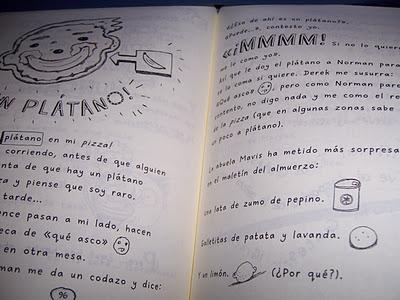 ¡UN PLÁTANO!
plátano en mi pizza!
corriendo, antes de que alguien
nta de que hay un plátano
za y piense que soy raro.
tarde...
ence pasan a mi lado, hacen
eca de «qué asco»
en otra mesa.
man me da un codazo y dice:
96
¿Eso de ahí es un plátano?».
«Puede...», contesto yo.
«¡MMMM! Si no lo quiere
me lo como yo».
Así que le doy el plátano a Norman para
se lo coma si quiere. Derek me susurra:
«QUÉ ASCO» , pero como Norman pare
contento, no digo nada y me como el res
de la pizza (que en algunas zonas sabe
un poco a plátano).
La abuela Mavis ha metido más sorpresa
en el maletín del almuerzo:
Una lata de zumo de pepino.
Galletitas de patata y lavanda.
Y un limón. (¿Por qué?).